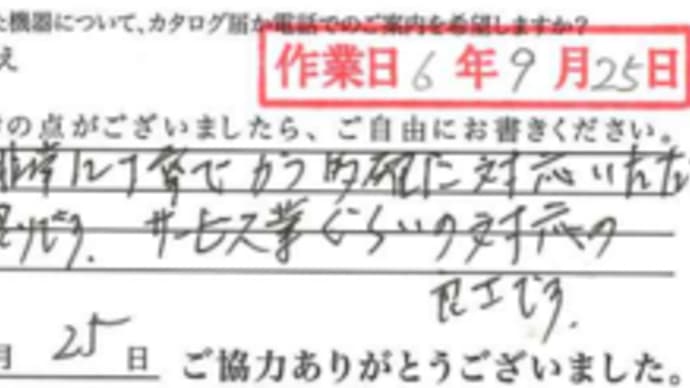 た機器について、カタログ届か電話でのご案内を希望しますか?
え
作業日 6 年 9 月 25 日
の点がございましたら、ご自由にお書きください。
非常に丁寧でかつ的確に対応いただ
です。サービス業ぐらいの対応の
良さです。
月 25 日 ご協力ありがとうございました。